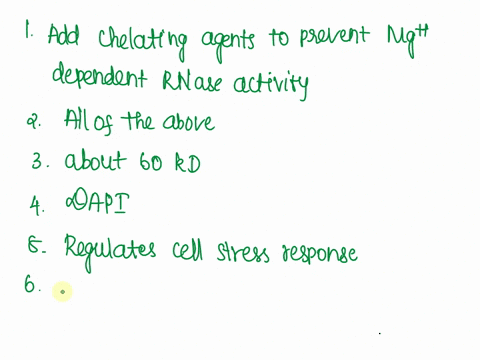 1. Add chelating agents to prevent Mg++
dependent RNase activity
2. All of the above
3. about 60 KD
4. DAPI
5. Regulates cell stress response
6.